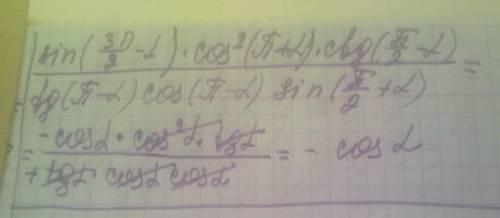 sin(3π/2 - α) · cos²(π + α) · ctg(π/2 - α)
= tg(π - α) cos(π - α) sin(π/2 + α) =
= -cosα · cos²α · tgα
+ tgα cosα cosα = - cosα